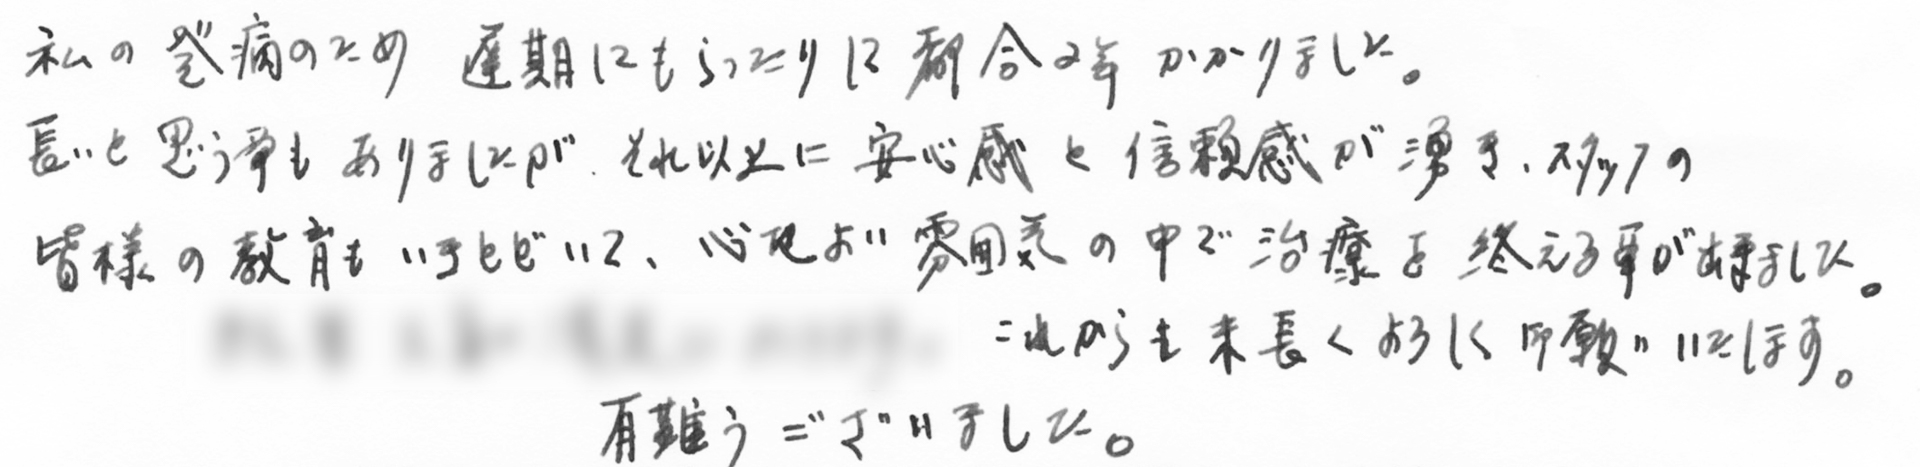 私の発病のため 遅期にもらったりに都合2年かかりました。
長いと思う事もありましたが、それ以上に安心感と信頼感が湧き、スタッフの
皆様の教育もいきとどいて、心地よい雰囲気の中で治療を終える事が出来ました。
これからも末長くよろしく御願いいたします。
有難うございました。